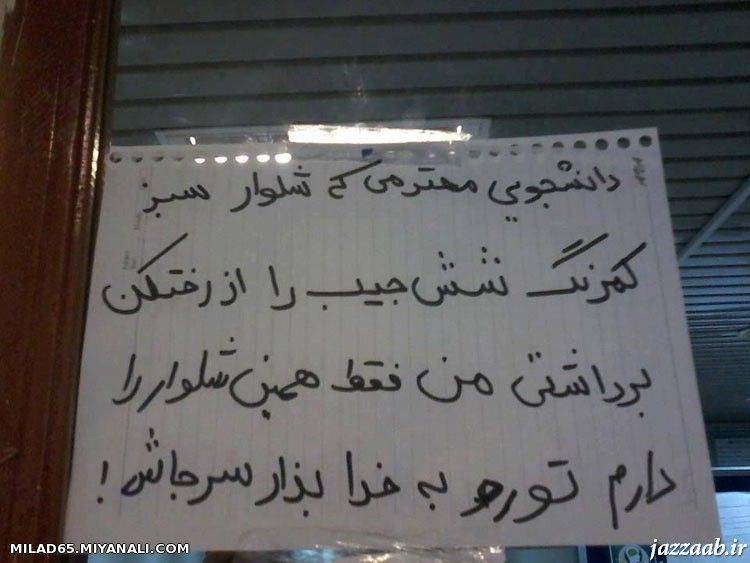 دانشجويي محترمي كه شلوار سبز
كمرنگ شش جيب را از رختكن
برداشتي من فقط همين شلوار را
دارم تورو به خدا بذار سرجاش!
MILAD65.MIYANALI.COM
jazzaab.ir